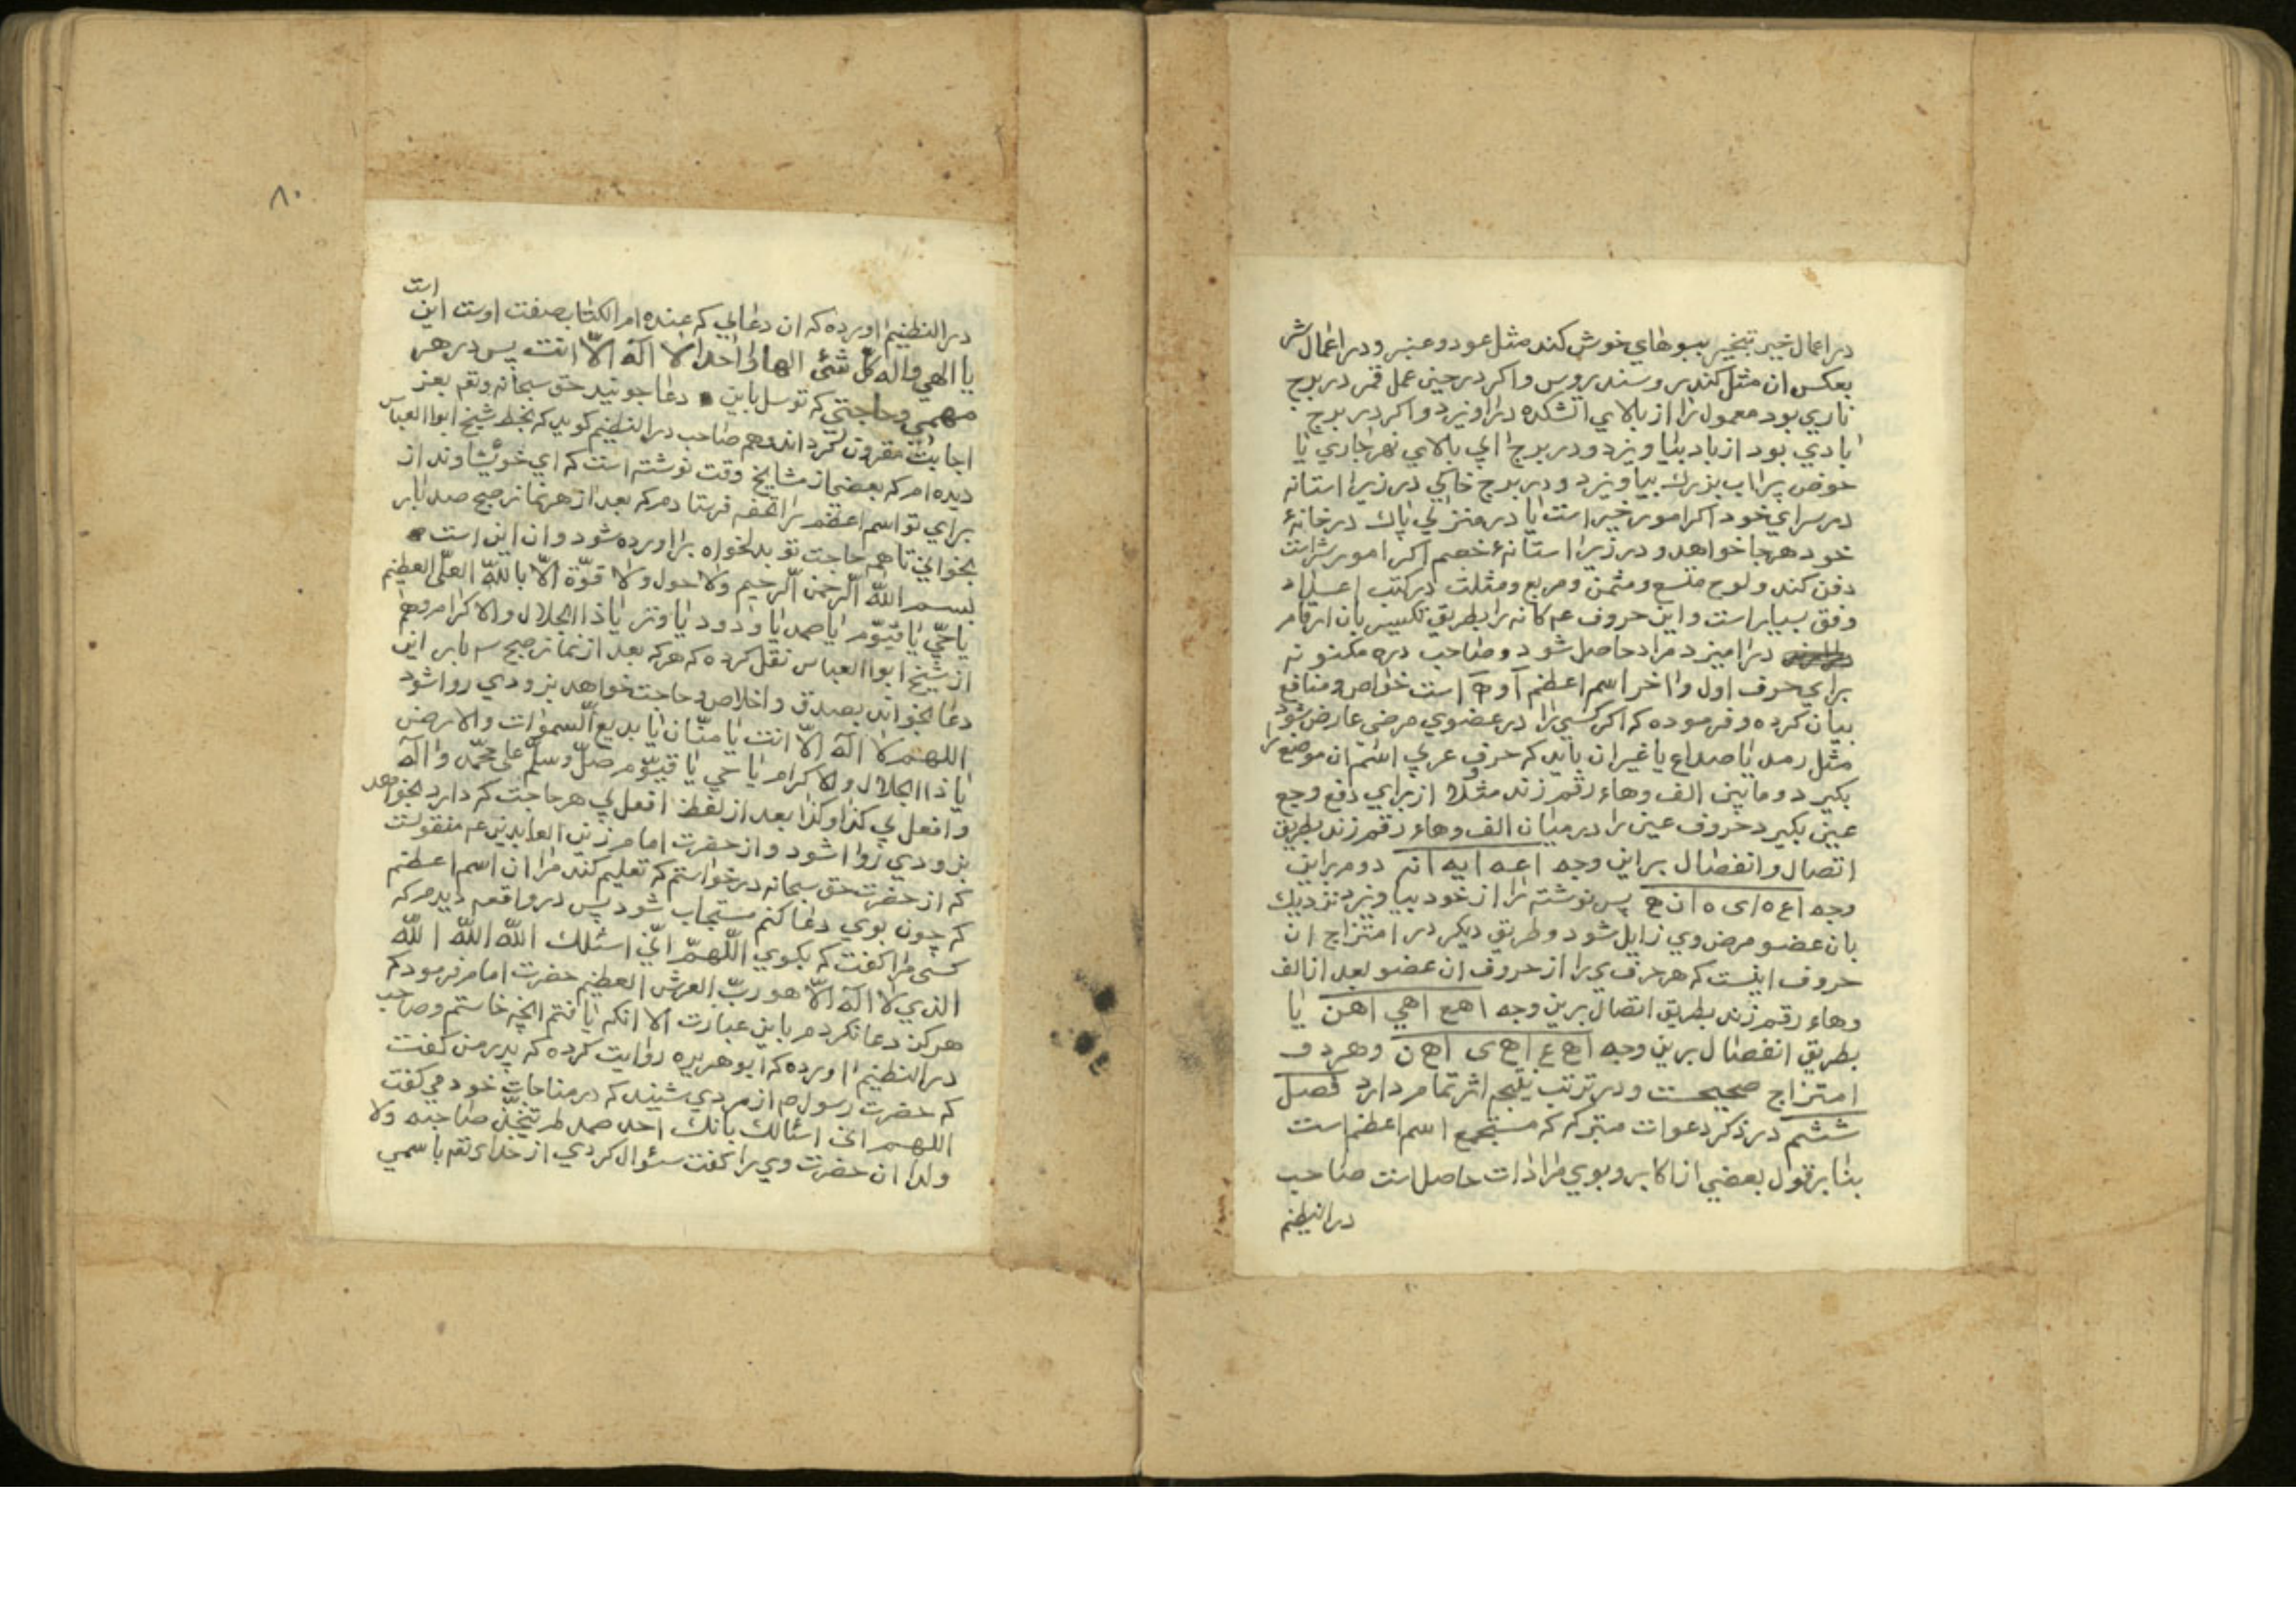 در اعمال خیر تبخیر ببوهای خوش کند مثل عود و عنبر و در اعمال شر
بعکس ان مثل کندر و سندروس و اکر در حین عمل قمر در برج
ناری بود معمول را از بالای اتشکده در اویزد و اکر در برج
بادی بود از باد بیاویزد و در برج ابی بالای نهر جاری یا
حوض پر اب بزرك بیاویزد و در برج خاکی در زیر استانه
در سرای خود اکر امور خیر است یا در منزلی پاك در خانهٔ
خود هرجا خواهد و در زیر استانهٔ خصم اکر امور شر است
دفن کند و لوح متسع و مثمن و مربع و مثلت در کتب اعداد
وفق بسیار است و این حروف عه کانه را بطریق تکسیر بان ارقام
در امیزد مراد حاصل شود و صاحب دره مکنونه
برای حرف اول و اخر اسم اعظم ا و ه است خواص و منافع
بیان کرده و فرموده که اکر کسی را در عضوی مرضی عارض شود
مثل رمد یا صداع یا غیر ان باید که حرف عربی اسم ان موضع را
بکیرد و مابین الف و هاء رقم زند مثلا از برای دفع وجع
عین بکیرد حروف عین را در میان الف و هاء رقم زند بطریق
اتصال و انفصال بر این وجه اعه ایه انه دوم براین
وجه اع ه ای ه ان ه پس نوشته را از خود بیاویزد نزدیك
بان عضو مرض وی زایل شود و طریق دیکر در امتزاج ان
حروف اینست که هر حرفی را از حروف ان عضو بعد از الف
و هاء رقم زند بطریق اتصال برین وجه اهع اهی اهن یا
بطریق انفصال برین وجه اه ع اه ی اه ن و هر دو
امتزاج صحیحست و در ترتب نتیجه اثر تمام دارد فصل
ششم در ذکر دعوات متبرکه که مستجمع اسم اعظم است
بنابر قول بعضی از اکابر و بوی مرادات حاصل است صاحب
در النظیم
۸۰
است
در النظیم اورده که ان دعایی که عنده ام الکتاب صفت اوست این
یا الهی و اله کل شئ الها واحدا لا اله الا انت پس در هر
مهمی و حاجتی که توسل باین دعا جوئید حق سبحانه و تعه بعز
اجابت مقرون کرداند و هم صاحب در النظیم کوید که بخط شیخ ابو العباس
دیده ام که بعضی از مشایخ وقت نوشته است که ای خویشاوند از
برای تو اسم اعظم را تحفه فرستادم که بعد از هر نماز صبح صد بار
بخوانی تا همه حاجت تو بدلخواه براورده شود و ان این است
بسم الله الرحمن الرحیم ولا حول ولا قوة الا بالله العلی العظیم
یا حی یا قیوم یا صمد یا ودود یا وتر یا ذا الجلال والاکرام و هم
از شیخ ابو العباس نقل کرده که هرکه بعد از نماز صبح سه بار این
دعا بخواند بصدق و اخلاص و حاجت خواهد بزودی روا شود
اللهم لا اله الا انت یا منان یا بدیع السموات والارض
یا ذا الجلال والاکرام یا حی یا قیوم صل وسلم علی محمد واله
وافعل بی کذا وکذا بعد از لفظ افعل بی هر حاجت که دارد بخواهد
بزودی روا شود و از حضرت امام زین العابدین عه منقولست
که از حضرت حق سبحانه درخواستم که تعلیم کند مرا ان اسم اعظم
که چون بوی دعا کنم مستجاب شود پس در واقعه دیدم که
کسی مرا کفت که بکوی اللهم انی اسئلك الله الله الله
الذی لا اله الا هو رب العرش العظیم حضرت امام فرمود که
هرکز دعا نکردم باین عبارت الا انکه یافتم انچه خاستم و صاحب
در النظیم اورده که ابو هریره روایت کرده که پدر من کفت
که حضرت رسول ص از مردی شنید که در مناجات خود می کفت
اللهم انی اسئالك بانك احد صمد لم تتخذ صاحبه ولا
ولدا ان حضرت وی را کفت سئوال کردی از خدای تعه باسمی